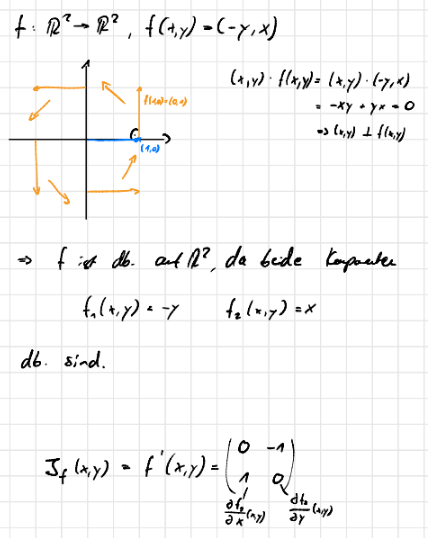 f: ℝ² → ℝ², f(x,y) = (-y, x)
(x,y) · f(x,y) = (x,y) · (-y,x)
= -xy + yx = 0
⇒ (x,y) ⊥ f(x,y)
f(1,0)=(0,1)
(1,0)
⇒ f ist db. auf ℝ², da beide Komponenten
f₁(x,y) = -y f₂(x,y) = x
db. sind.
J_f (x,y) = f'(x,y) = (0 -1
1 0)
∂f₂/∂x (x,y) ∂f₂/∂y (x,y)